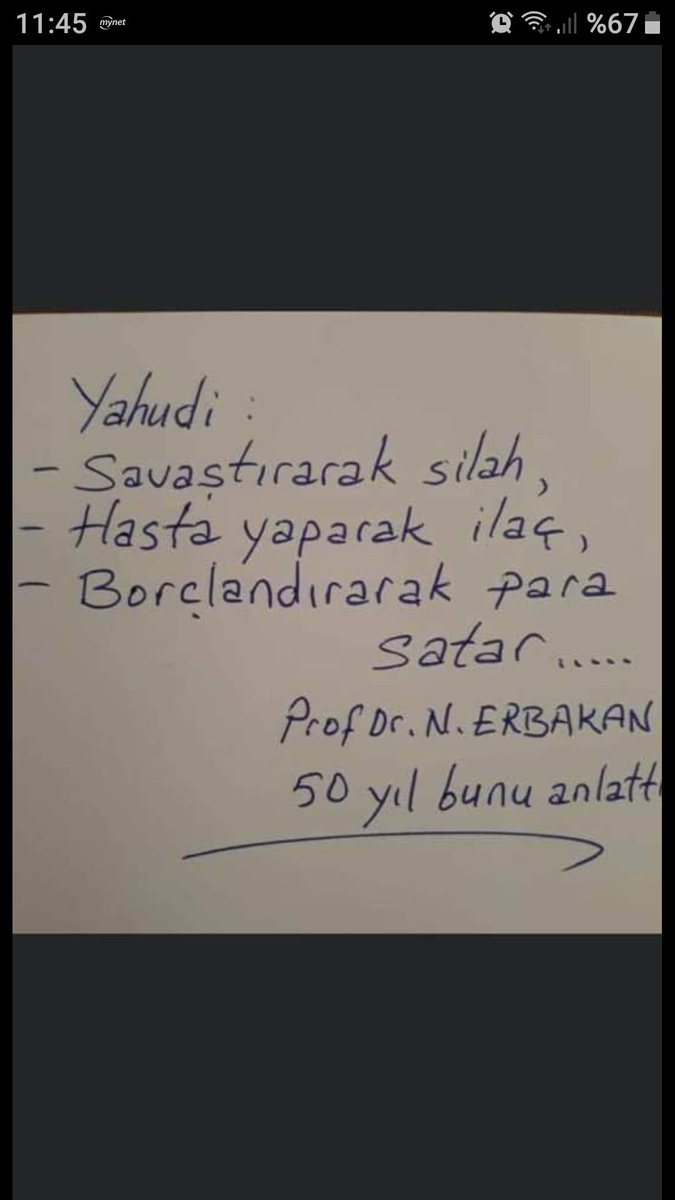 11:45 mynet %67
Yahudi :
- Savaştırarak silah,
- Hasta yaparak ilaç,
- Borçlandırarak para
satar.....
Prof Dr. N. ERBAKAN
50 yıl bunu anlattı